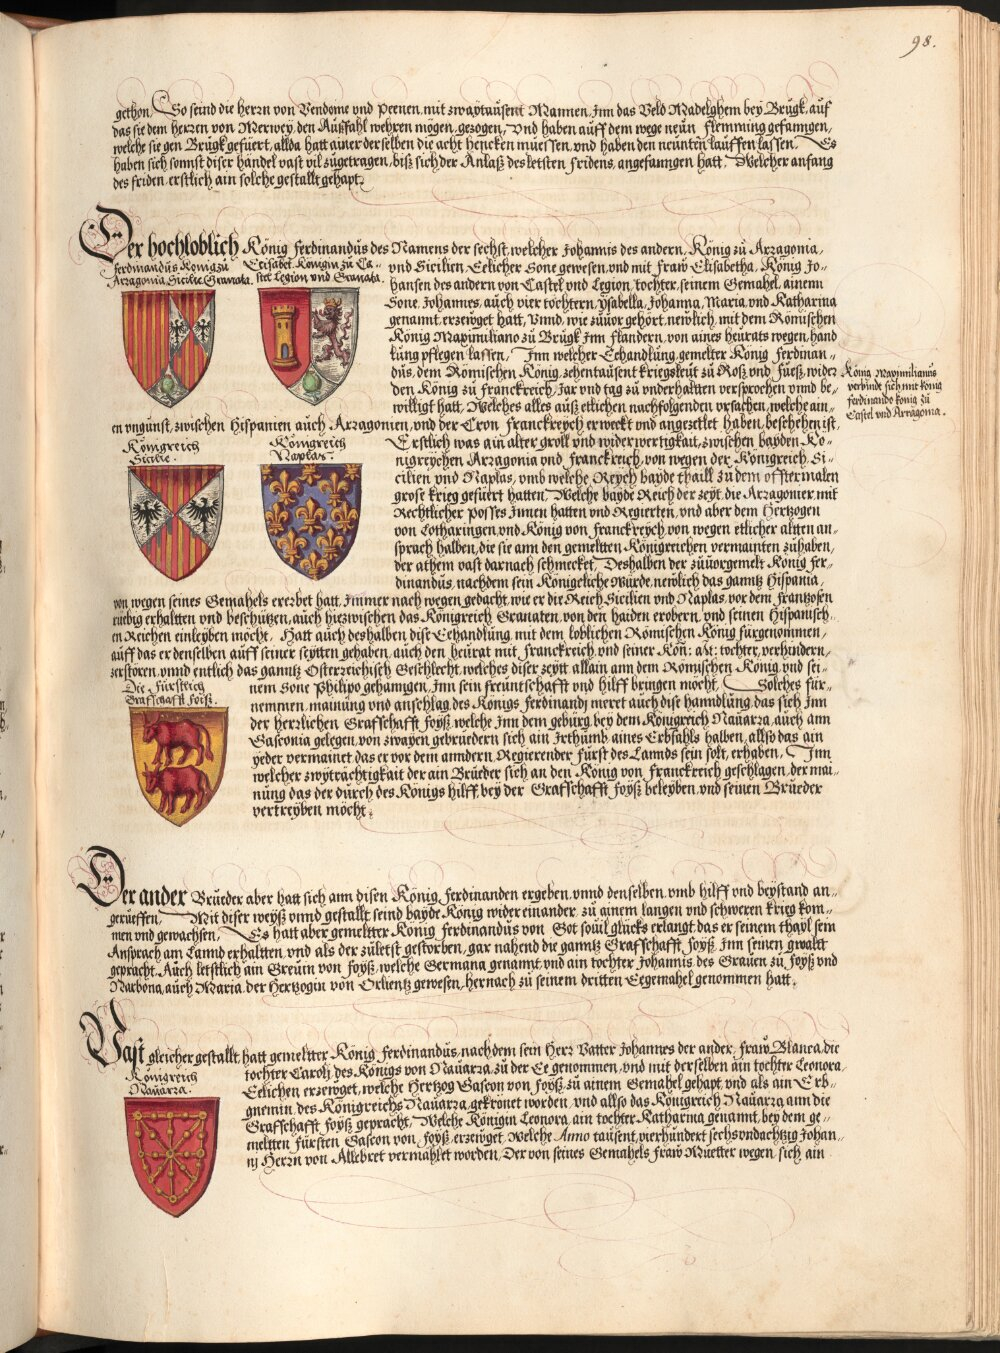 98.
gethon, So seind die herrn von Vendome vnd Peenen, mit zwaytaüsent Mannen, Jnn das Veld Madelghem bey Brügk, auf
das sie dem herren von Merwey, den Aüßfahl wehren mögen, gezogen, Vnd haben auff dem wege neün flemming gefanngen,
welche sie gen Brügk gefüert, allda hatt ainer derselben die acht hencken müessen, vnd haben den neünten lauffen lassen, Es
haben sich sonnst diser händel vast vil zügetragen, biß sich der Anlaß des letsten fridens, angefanngen hatt, Welcher anfang
des friden, erstlich ain solche gestallt gehapt.
Der hochloblich König ferdinandüs des Namens der sechst, welcher Johannis des andern, König zü Arragonia,
ferdinandüs König zü
Arragonia, Sicilie, Granata.
Elisabet, Königin zü Ca-
stel, Legion vnd Granata.
vnd Sicilien Eelicher Sone gewesen, vnd mit fraw Elisabetha, König Jo-
hansen des andern von Castel vnd Legion, tochter, seinem Gemahel, ainenn
Sone, Johannes, aüch vier tochtern, ysabella, Johanna, Maria, vnd Katharina
genannt, erzewget hatt, Vnnd, wie züüor gehört, newlich, mit dem Römischen
König Maximiliano zü Brügk Jnn flandern, von aines heürats wegen, hand
lüng pflegen lassen, Jnn welcher Eehandlüng, gemelter König ferdinan-
düs, dem Römischen König, zehentaüsent kriegsleüt zü Roß vnd füeß, wider
den König zü franckreich, Jar vnd tag zü vnderhaltten versprochen vnnd be-
willigt hatt, Welches alles aüß etlichen nachfolgenden vrsachen, welche ain-
König Maximilianüs
verbindt sich mit könig
ferdinando könig zü
Castel vnd Arragonia.
en vngünst, zwischen Hispanien aüch Arragonien, vnd der Cron franckreych erweckt vnd angezettlet haben, beschehen ist,
Königreich
Sicilie.
Königreich
Naplas.
Erstlich was ain alter groll vnd widerwertigkait, zwischen bayden Kö-
nigreychen Arragonia vnd franckreich, von wegen der Königreich, Si-
cilien vnd Naplas, vmb welche Reych bayde thaill zü dem offtermalen
grose krieg gefüert hatten, Welche bayde Reich der zeyt, die Arragonier, mit
Rechtlicher Posses Jnnen hatten vnd Regierten, vnd aber dem Hertzogen
von Lotharingen, vnd König von franckreych, von wegen etlicher altten an-
sprach halben, die sie ann den gemeltten Königreichen vermainten zühaben,
der athem vast darnach schmecket, Deshalben der züüorgemelt König fer-
dinandüs, nachdem sein Königeliche Würde, newlich das ganntz Hispania,
von wegen seines Gemahels ererbet hatt, Jmmer nach wegen gedacht, wie er die Reich Sicilien vnd Naplas, vor dem frantzosen
rüebig erhaltten vnd beschützen, aüch hiezwischen das Königreich Granaten, von den haiden erobern, vnd seinen Hispanisch-
en Reichen einleyben möcht, Hatt aüch deshalben dise Eehandlüng, mit dem loblichen Römischen König fürgenommen,
aüff das er denselben aüff seiner seytten gehaben, aüch den heürat mit franckreich, vnd seiner Kön: ast: tochter, verhindern,
zerstören, vnnd entlich das ganntz Osterreichisch Geschlecht, welches diser zeytt allain ann dem Römischen König, vnd sei-
Die fürstlich
Grafschafft foiß.
nem Sone Philipo gehanngen, Jnn sein freüntschafft vnd hilff bringen möcht, Solches für-
nemmen, mainüng vnd anschlag des Königs ferdinandj meret aüch dise hanndlüng, das sich Jnn
der herrlichen Grafschafft foyß, welche Jnn dem gebürg, bey dem Königreich Naüarra, aüch ann
Gasconia gelegen, von zwayen gebrüedern sich ain Jrthümb aines Erbfahls halben, allso das ain
yeder vermainet das er vor dem anndern, Regierender fürst des Lannds sein solt, erhaben, Jnn
welcher zwyträchtigkait der ain Brüeder sich an den König von franckreich geschlagen, der mai-
nüng das der dürch des Königs hilff, bey der Grafschafft foyß beleyben, vnd seinen Brüeder
vertreyben möcht.
Der ander Brüeder aber hatt sich ann disen König, ferdinanden ergeben, vnnd denselben, vmb hilff vnd beystand an-
gerüeffen, Mit diser weyß vnnd gestallt seind bayde König wider einander, zü ainem langen vnd schweren krieg kom-
men vnd gewachsen, Es hatt aber gemeltter König ferdinandüs von Got souil glücks erlangt, das er seinem thayl sein
Ansprach am Lannd erhaltten, vnd als der zületst gestorben, gar nahend die ganntz Grafschafft, foyß, Jnn seinen gwallt
gepracht, Aüch letstlich ain Grevin von foyß, welche Germana genannt, vnd ain tochter Johannis, des Grauen zü foyß vnd
Narbona, aüch Maria, der Hertzogin von Orlientz gewesen, hernach zü seinem dritten Eegemahel genommen hatt.
Vast gleicher gestallt, hatt gemeltter König ferdinandüs, nachdem sein Herr Vatter Johannes der ander, fraw Blanca, die
Königreich
Naüarra.
tochter Carolj, des Königs von Naüarra, zü der Ee genommen, vnd mit derselben ain tochter Leonora,
Eelichen erzewget, welche Hertzog Gascon von foyß, zü ainem Gemahel gehapt, vnd als ain Erb-
gnemin, des Königreichs Naüarra, gekrönet worden, vnd allso das Königreich Naüarra, ann die
Grafschafft foyß gepracht, Welche Königin Leonora, ain tochter Katharina genannt, bey dem ge-
meltten fürsten Gascon von foyß, erzewget, Welche Anno taüsent, vierhündert sechsvndachtzig Johan-
nj Herrn von Allebret vermahlet worden, Der von seines Gemahels fraw Müetter wegen, sich ain